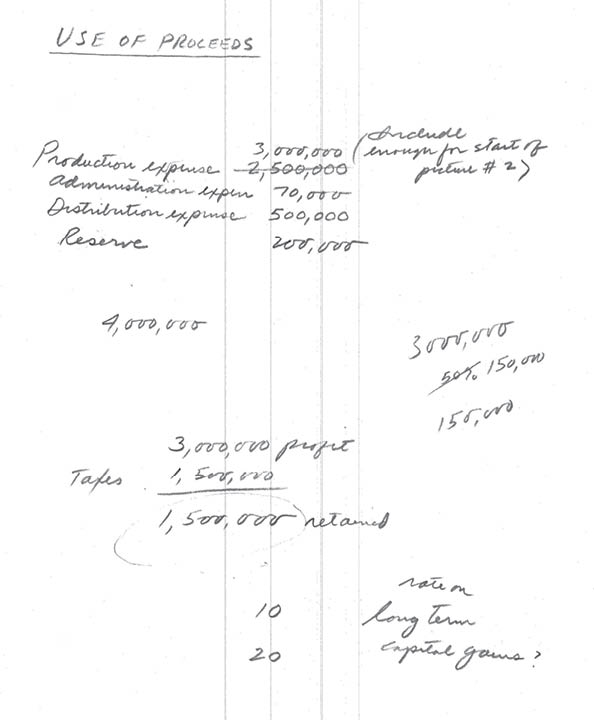 USE OF PROCEEDS
3,000,000 (Include
Production expense 2,500,000 enough for start of
picture # 2)
Administration expen 70,000
Distribution expense 500,000
Reserve 200,000
4,000,000
3000,000
50% 150,000
150,000
3,000,000 profit
Taxes 1,500,000
1,500,000 retained
rate on
10 long term
20 capital gains?